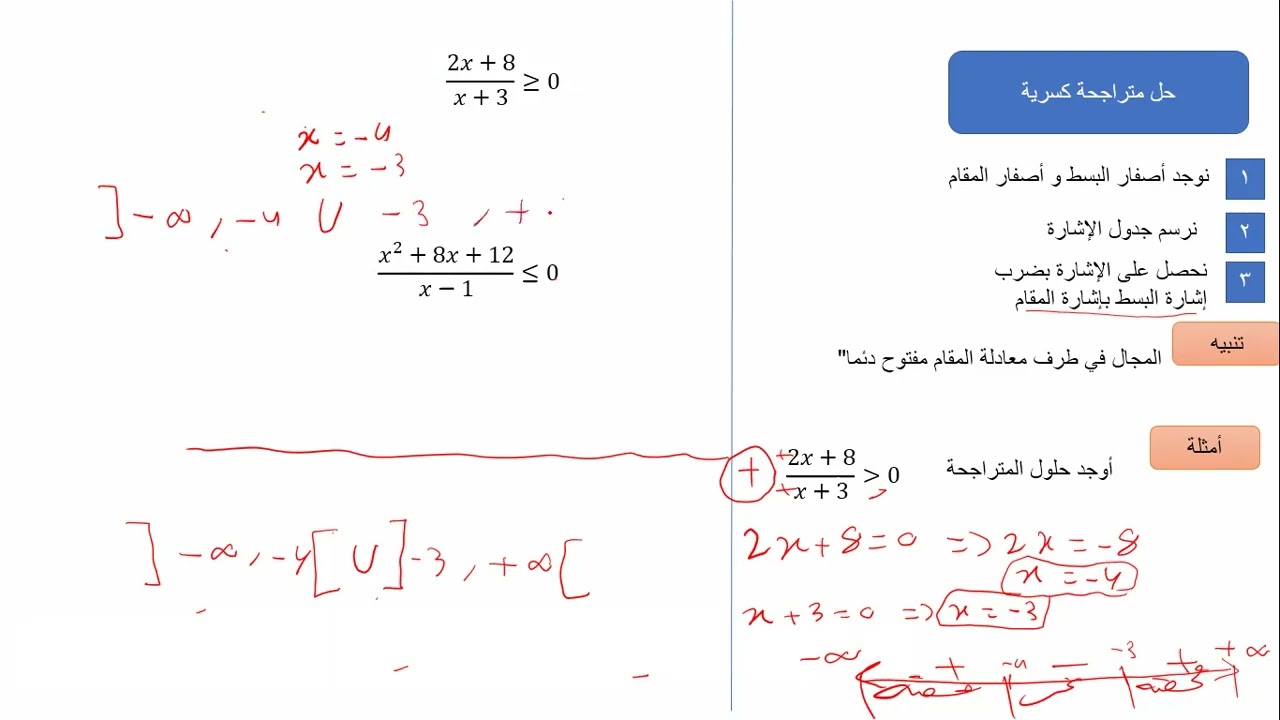 حل متراجحة كسرية
١ نوجد أصفار البسط و أصفار المقام
٢ نرسم جدول الإشارة
٣ نحصل على الإشارة بضرب
إشارة البسط بإشارة المقام
تنبيه
المجال في طرف معادلة المقام مفتوح دئما"
أمثلة
أوجد حلول المتراجحة
(2x + 8)/(x + 3) > 0
+
+
+
2x + 8 = 0 => 2x = -8
x = -4
x + 3 = 0 => x = -3
-∞ + -4 - -3 + +∞
(2x + 8)/(x + 3) ≥ 0
x = -4
x = -3
] -∞ , -4 ∪ -3 , +
(x² + 8x + 12)/(x - 1) ≤ 0
] -∞ , -4 [ ∪ ] -3 , +∞ [